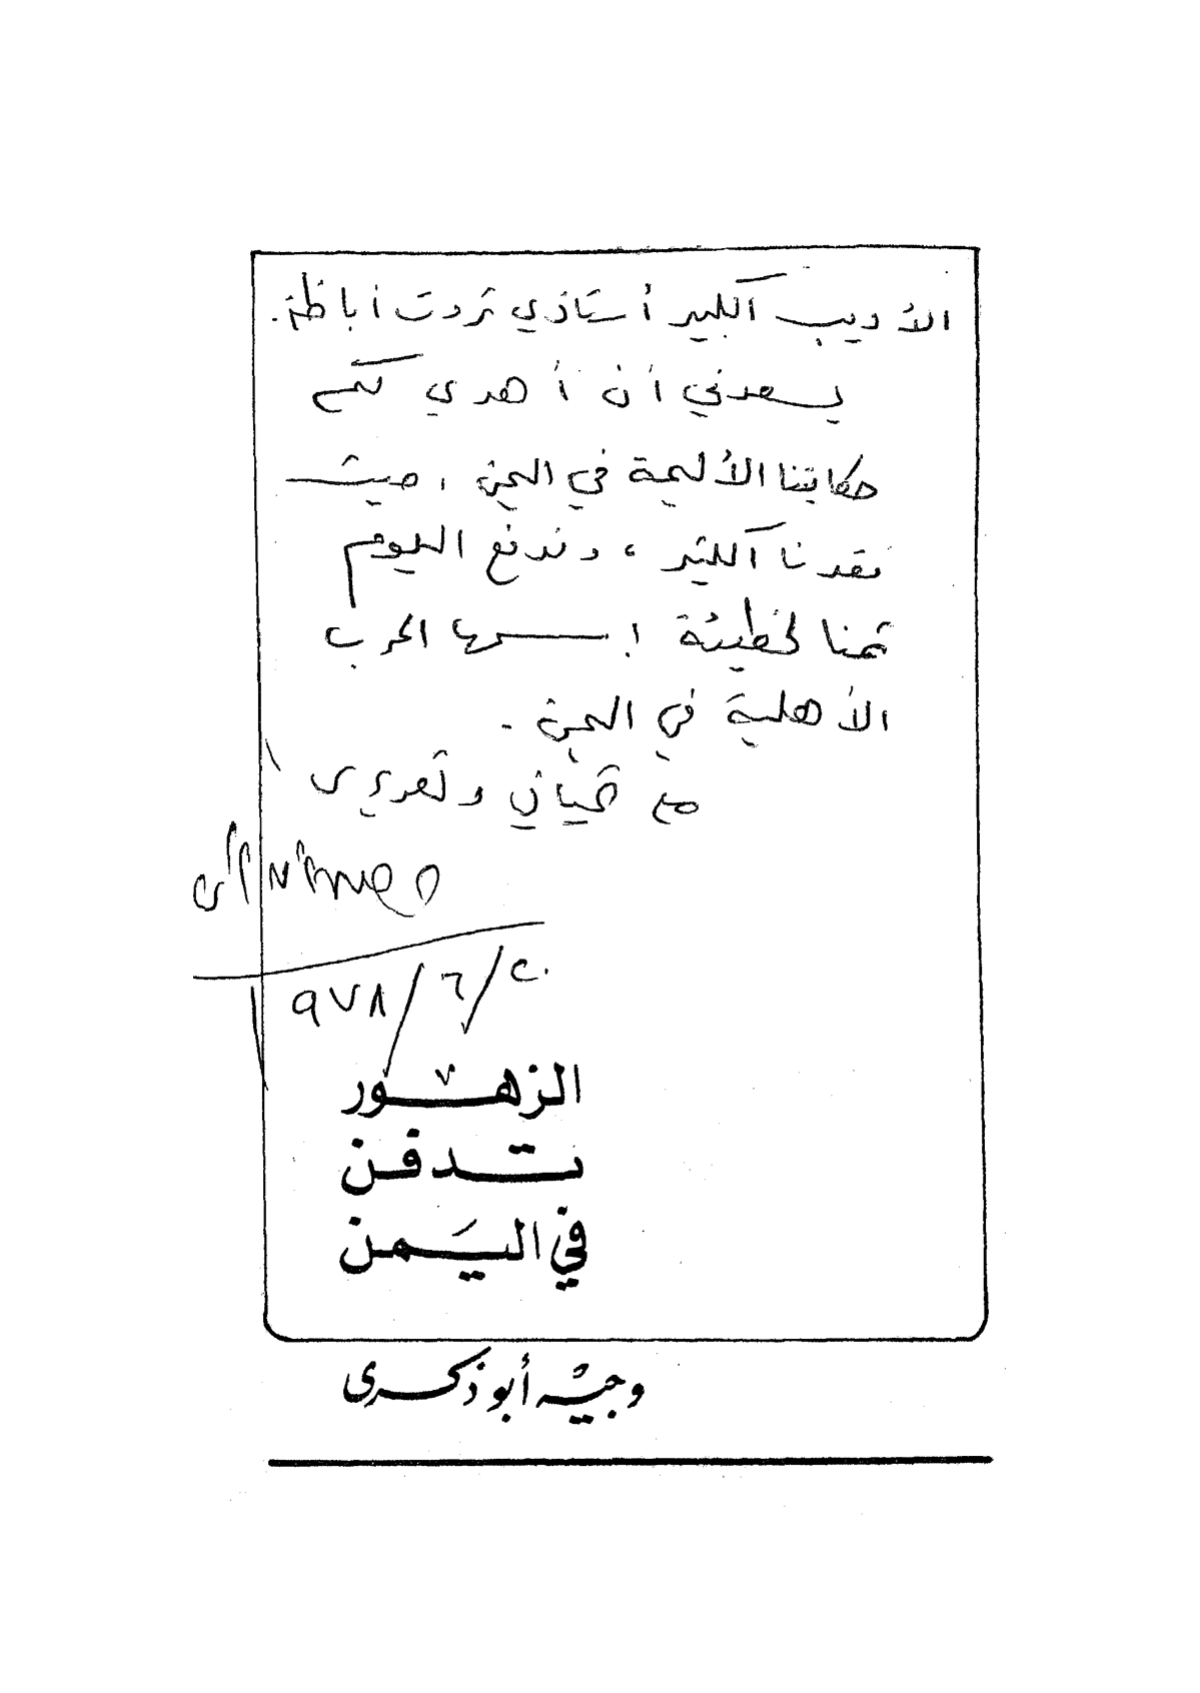 الأديب الكبير أستاذي ثروت أباظة.
يسعدني أن أهدي لكم
حكايتنا الأليمة في اليمن ، حيث
فقدنا الكثير ، وندفع اليوم
ثمنا لخطيئة اسمها الحرب
الأهلية في اليمن .
مع تحياتي وتقديري
٢٠/٦/٩٧٨
الزهور
تدفن
في اليمن
وجيه أبو ذكرى